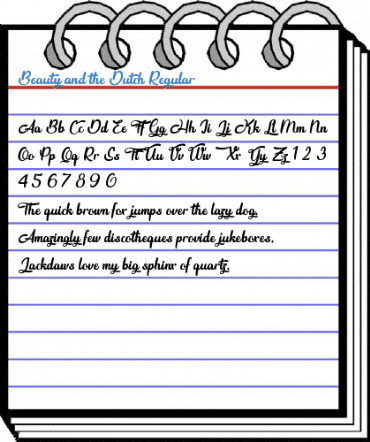 Beauty and the Dutch Regular
Aa Bb Cc Dd Ee Ff Gg Hh Ii Jj Kk Ll Mm Nn
Oo Pp Qq Rr Ss Tt Uu Vv Ww Xx Yy Zz 1 2 3
4 5 6 7 8 9 0
The quick brown fox jumps over the lazy dog.
Amazingly few discotheques provide jukeboxes.
Jackdaws love my big sphinx of quartz.